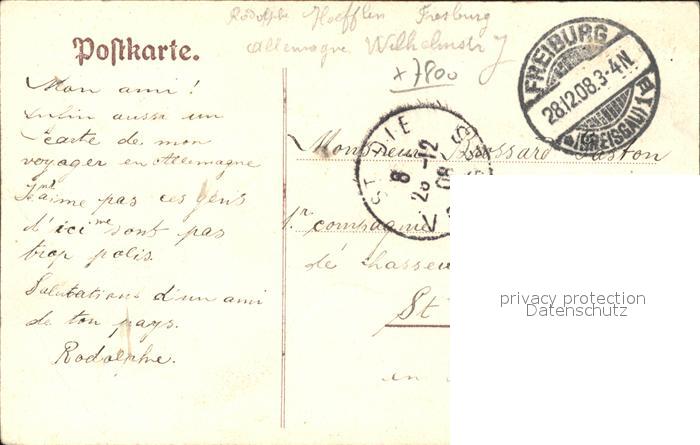 Rodolphe Hoefflin Freiburg
Allemagne Wilhelmstr
x7800
Postkarte.
FREIBURG
28.12.08.3-4N.
(BREISGAU) 1
ST DIE
8
28-12
08
Mon ami!
aussi un
carte de mon
voyager en Allemagne
J'aime pas ces gens
d'ici sont pas
trop polis.
Salutations d'un ami
de ton pays.
Rodolphe.
Monsieur Gaston
1.r compagnie
de
St
en
privacy protection
Datenschutz